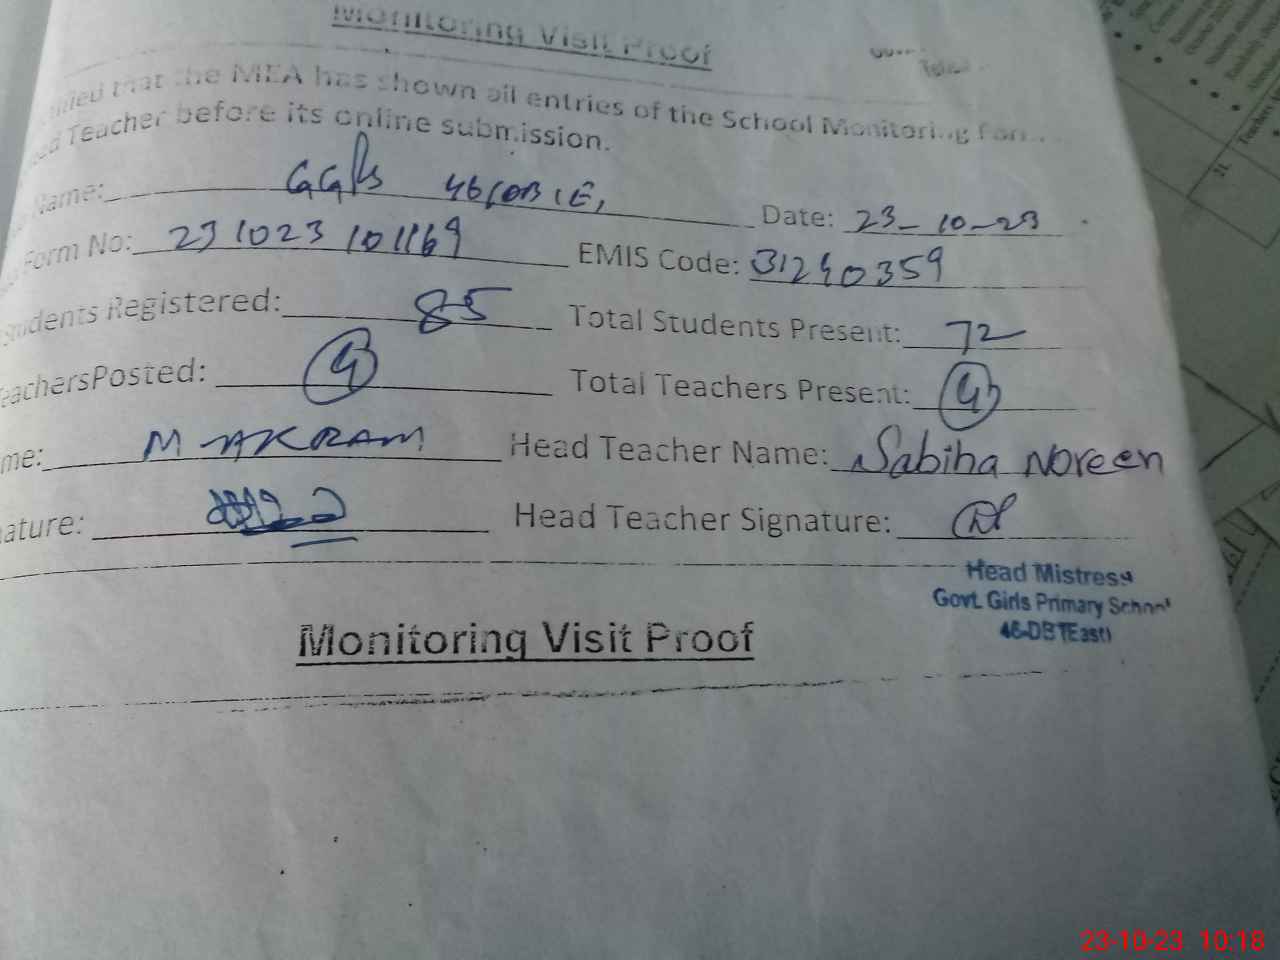 Monitoring Visit Proof
that the MEA has shown all entries of the School Monitoring
Teacher before its online submission.
Name: GGPS 46/DB (E) Date: 23-10-23
Form No: 231023101169 EMIS Code: 31240359
Students Registered: 85 Total Students Present: 72
TeachersPosted: 4 Total Teachers Present: 4
me: M AKRAM Head Teacher Name: Sabiha Noreen
ature: Head Teacher Signature:
Head Mistress
Govt. Girls Primary School
46-DB (East)
Monitoring Visit Proof
23-10-23 10:18